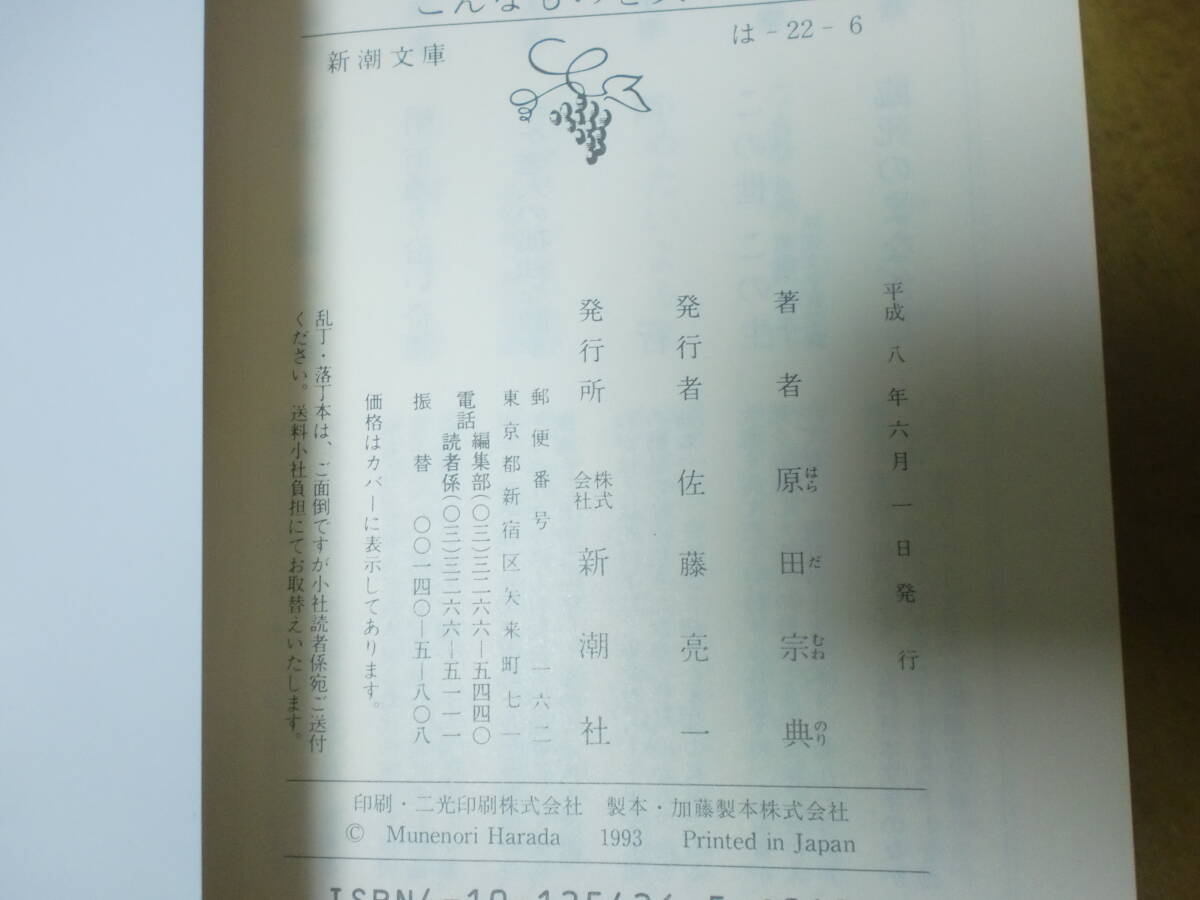 こんなもの
新潮文庫
は-22-6
平成八年六月一日発行
著者 原田宗典
はらだむねのり
発行者 佐藤亮一
発行所 株式会社 新潮社
郵便番号 一六二
東京都新宿区矢来町七一
電話 編集部(〇三)三二六六―五四四〇
読者係(〇三)三二六六―五一一一
振替 〇〇一四〇―五―八〇八
価格はカバーに表示してあります。
乱丁・落丁本は、ご面倒ですが小社読者係宛ご送付
ください。送料小社負担にてお取替えいたします。
印刷・二光印刷株式会社 製本・加藤製本株式会社
© Munenori Harada 1993 Printed in Japan